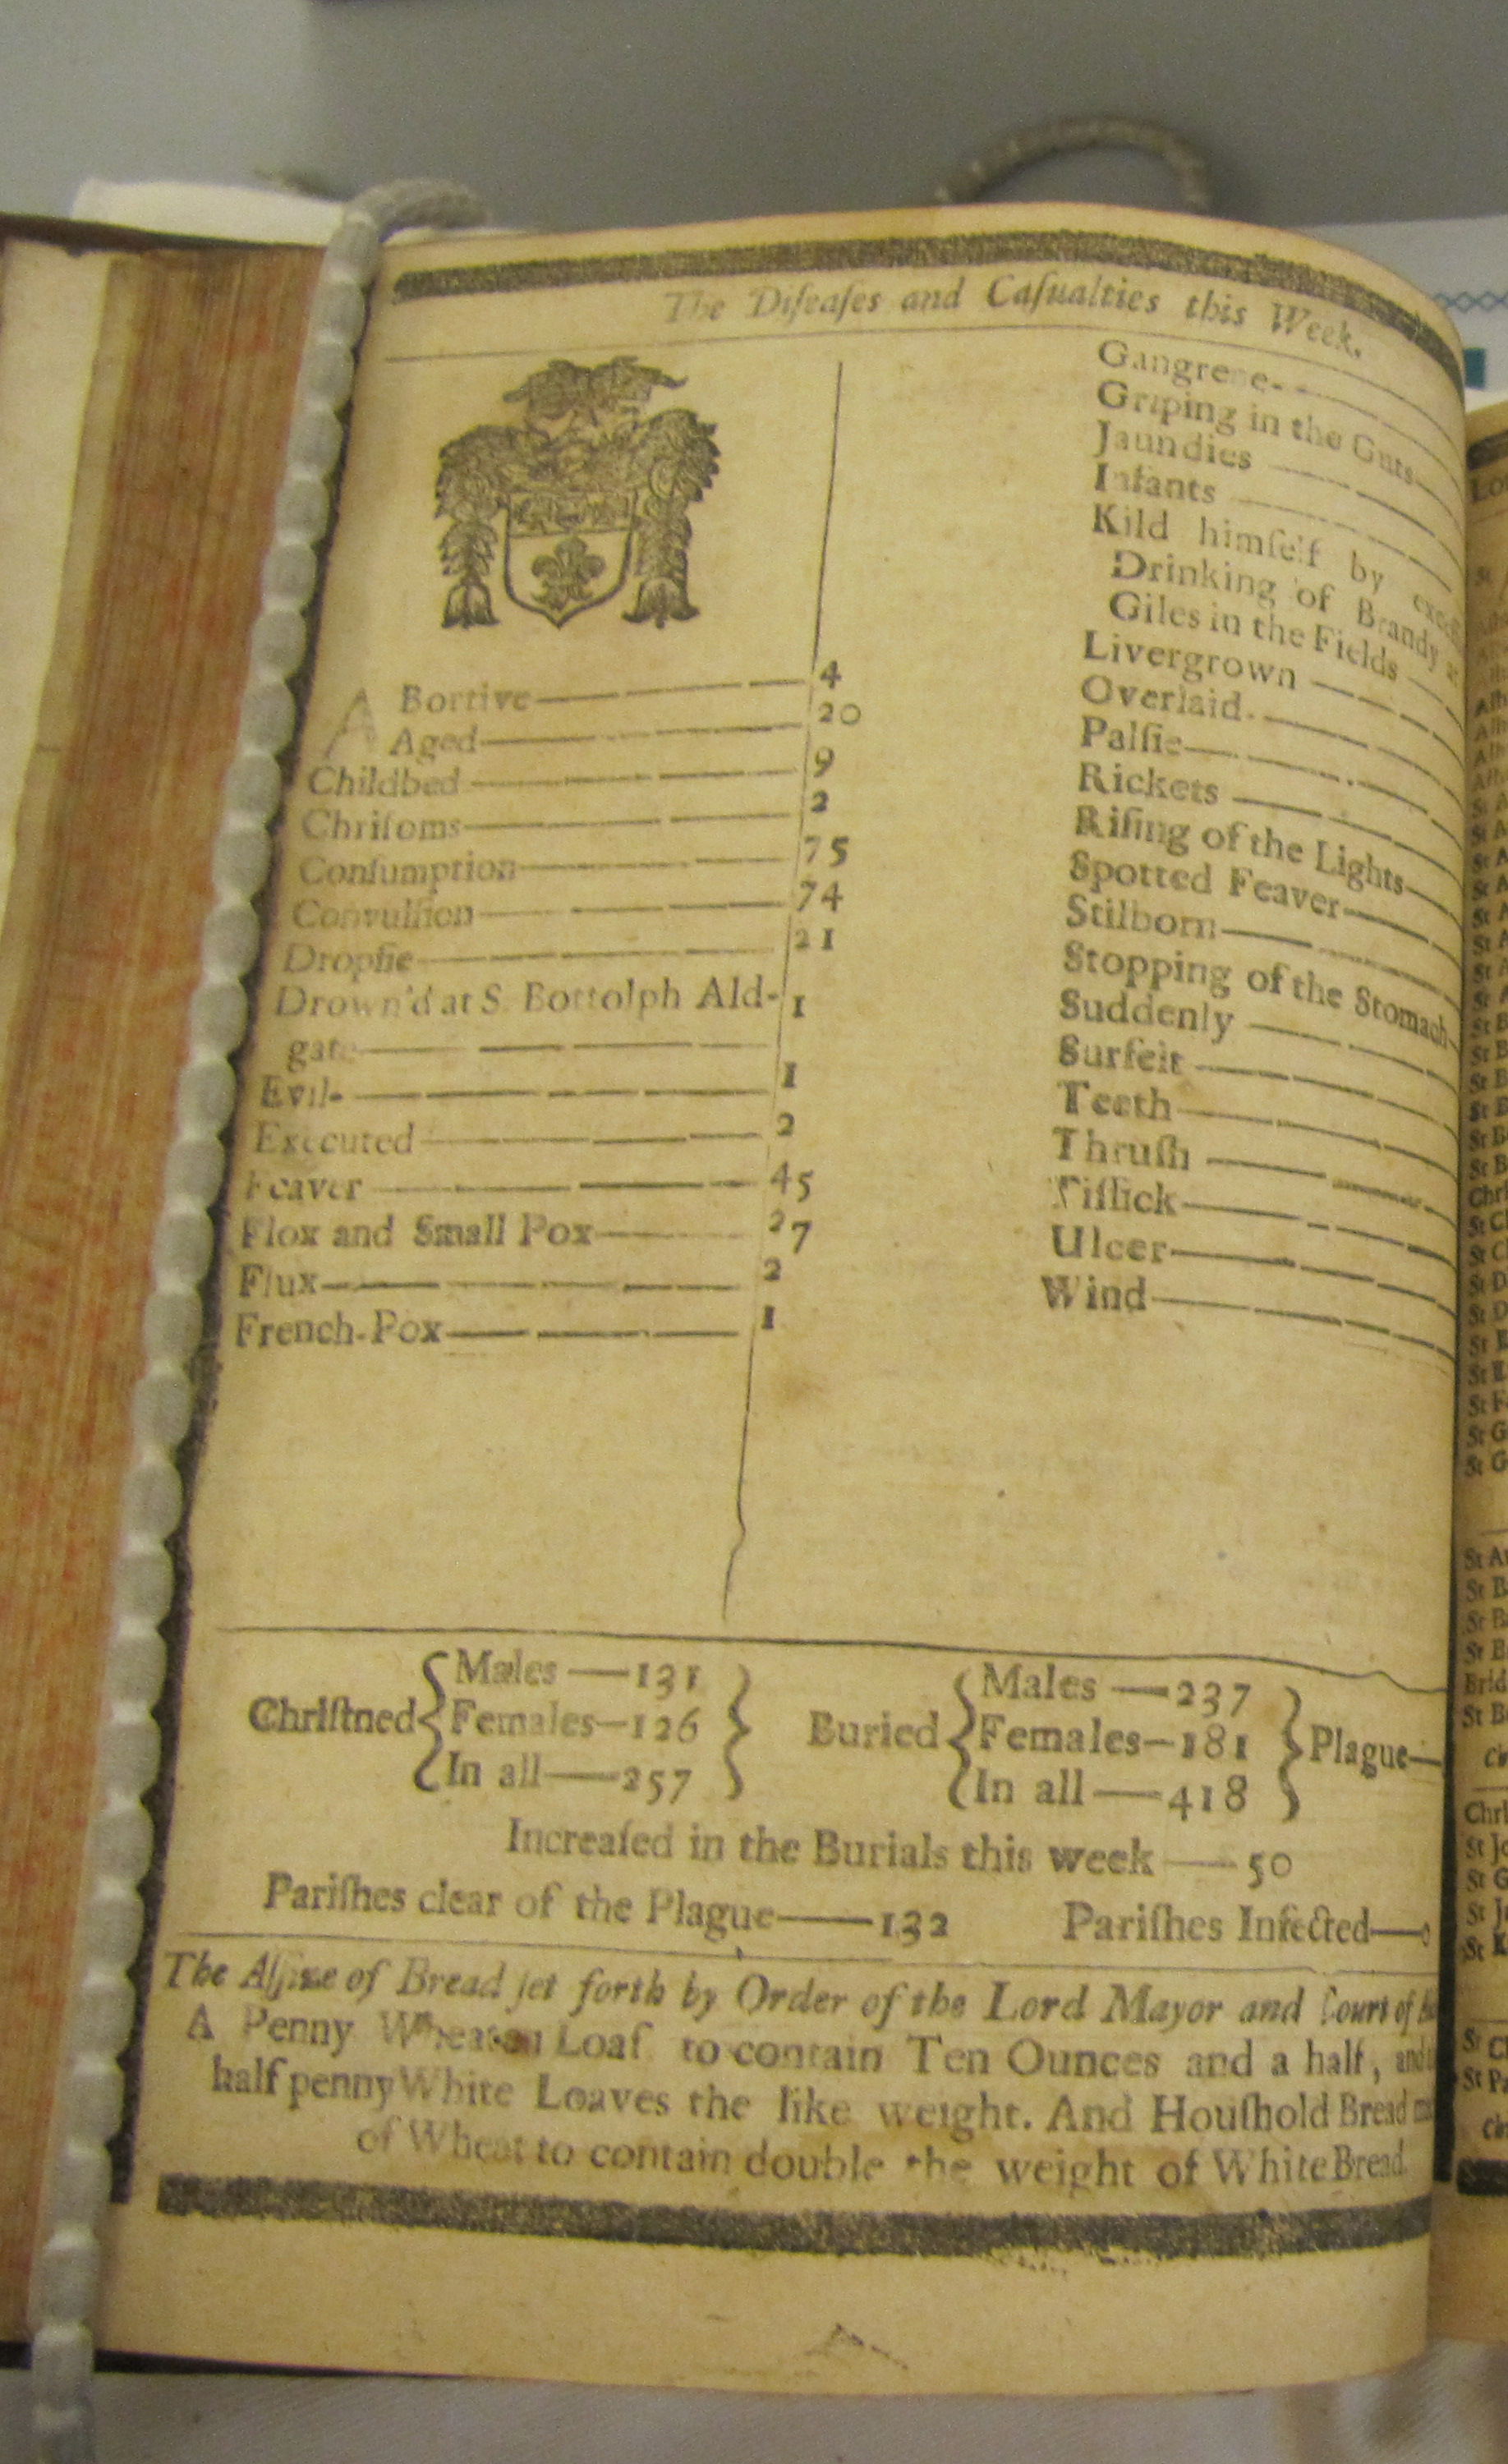 The Diſeaſes and Caſualties this Week.
A Bortive 4
Aged 20
Childbed 9
Chriſoms 2
Conſumption 75
Convulſion 74
Dropſie 21
Drown'd at S. Bottolph Ald-
gate 1
Evil 1
Executed 2
Feaver 45
Flox and Small Pox 27
Flux 2
French-Pox 1
Gangrene
Griping in the Guts
Jaundies
Infants
Kild himſelf by
Drinking of Brandy
Giles in the Fields
Livergrown
Overlaid
Palſie
Rickets
Riſing of the Lights
Spotted Feaver
Stilborn
Stopping of the Stomach
Suddenly
Surfeit
Teeth
Thruſh
Tiſſick
Ulcer
Wind
Chriſtned
Males — 131
Females — 126
In all — 257
Buried
Males — 237
Females — 181
In all — 418
Plague —
Increaſed in the Burials this week — 50
Pariſhes clear of the Plague — 132 Pariſhes Infected —
The Aſſize of Bread ſet forth by Order of the Lord Mayor and Court of
A Penny Wheaten Loaf to contain Ten Ounces and a half, and
half penny White Loaves the like weight. And Houſhold Bread
of Wheat to contain double the weight of White Bread.